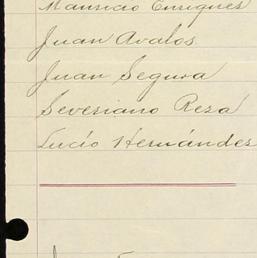 Mauricio Enriques
Juan Avalos
Juan Segura
Severiano Reza
Lucío Hernándes